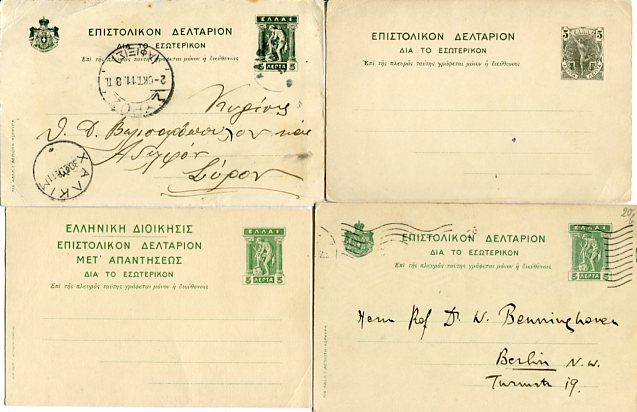 ΕΠΙΣΤΟΛΙΚΟΝ ΔΕΛΤΑΡΙΟΝ
ΔΙΑ ΤΟ ΕΣΩΤΕΡΙΚΟΝ
Ἐπὶ τῆς πλευρᾶς ταύτης γράφεται μόνον ἡ διεύθυνσις
ΕΛΛΑΣ
5 ΛΕΠΤΑ 5
2-ΟΚΤ.11.8
ΧΑΛΚΙΣ
Κυρίους
Ἀδελφὸν
Σῦρον
ΕΠΙΣΤΟΛΙΚΟΝ ΔΕΛΤΑΡΙΟΝ
ΔΙΑ ΤΟ ΕΣΩΤΕΡΙΚΟΝ
Ἐπὶ τῆς πλευρᾶς ταύτης γράφεται μόνον ἡ διεύθυνσις
5 5
ΕΛΛΗΝΙΚΗ ΔΙΟΙΚΗΣΙΣ
ΕΠΙΣΤΟΛΙΚΟΝ ΔΕΛΤΑΡΙΟΝ
ΜΕΤ' ΑΠΑΝΤΗΣΕΩΣ
ΔΙΑ ΤΟ ΕΣΩΤΕΡΙΚΟΝ
Ἐπὶ τῆς πλευρᾶς ταύτης γράφεται μόνον ἡ διεύθυνσις
ΕΛΛΑΣ
5 ΛΕΠΤΑ 5
ΕΠΙΣΤΟΛΙΚΟΝ ΔΕΛΤΑΡΙΟΝ
ΔΙΑ ΤΟ ΕΣΩΤΕΡΙΚΟΝ
Ἐπὶ τῆς πλευρᾶς ταύτης γράφεται μόνον ἡ διεύθυνσις
ΕΛΛΑΣ
5 ΛΕΠΤΑ 5
Herrn Prof Dr W. Benninghoven
Berlin N.W.
Turmstr 19.